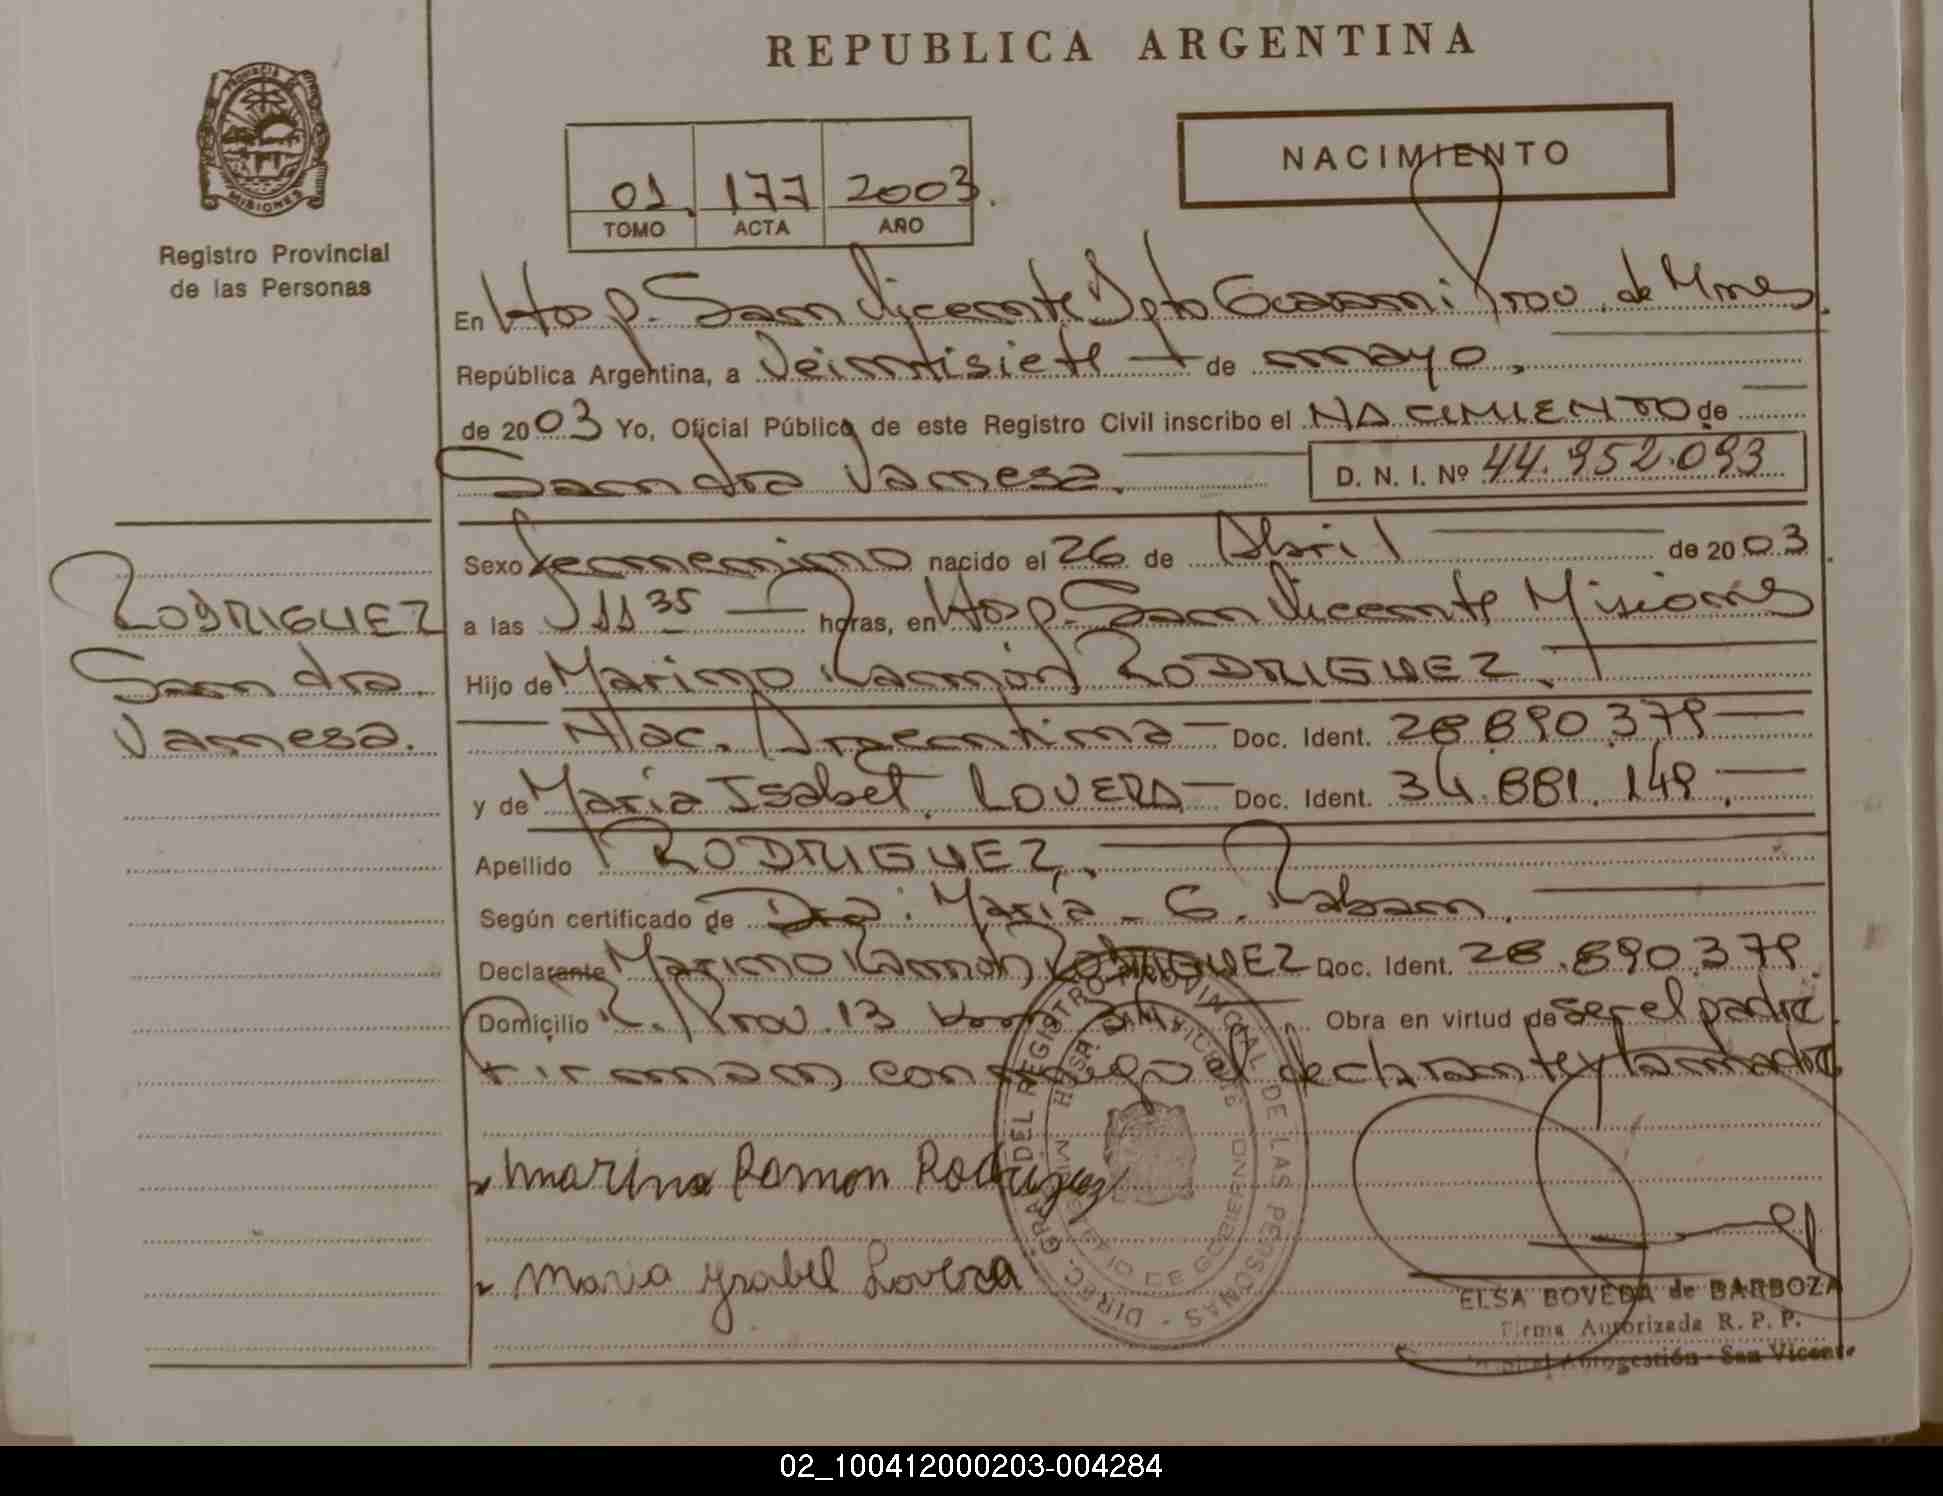 REPUBLICA ARGENTINA
PROVINCIA DE MISIONES
Registro Provincial
de las Personas
01. 177 2003.
TOMO ACTA AÑO
NACIMIENTO
En Hosp. San Vicente Dpto Guarani Prov. de Mnes.
República Argentina, a Veintisiete de mayo.
de 2003 Yo, Oficial Público de este Registro Civil inscribo el NACIMIENTO de
Sandra Vanesa. D. N. I. Nº 44.952.093
RODRIGUEZ
Sandra
Vanesa.
Sexo femenino nacido el 26 de Abril de 2003.
a las 11 35 horas, en Hosp. San Vicente Misiones
Hijo de Marino Ramón RODRIGUEZ.
Nac. Argentina Doc. Ident. 28.890.379
y de Maria Isabel LOVERA Doc. Ident. 34.881.149.
Apellido RODRIGUEZ.
Según certificado de Dra. María G. Raban.
Declarante Marino Ramón RODRIGUEZ Doc. Ident. 28.890.379.
Domicilio R. Prov. 13 Obra en virtud de ser el padre.
Firman conmigo el declarante y la madre
Marino Ramon Rodriguez
Maria Ysabel Lovera
DIREC. GRAL. DEL REGISTRO PROVINCIAL DE LAS PERSONAS
MINISTERIO DE GOBIERNO
ELSA BOVEDA de BARBOZA
Firma Autorizada R. P. P.
Autogestión - San Vicente
02_100412000203-004284